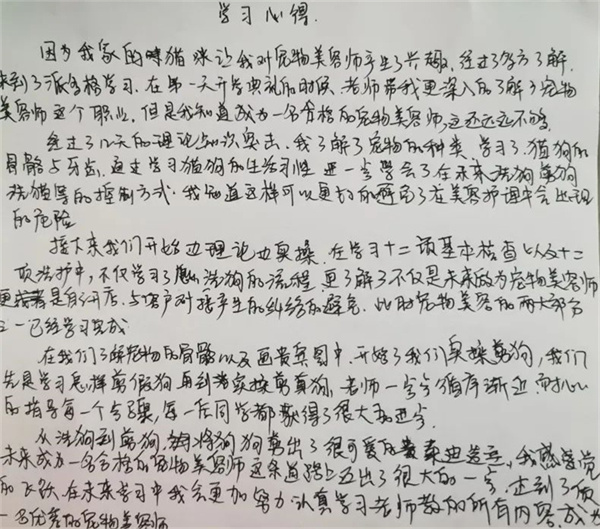 学习心得.
因为我家的猫咪让我对宠物美容师产生了兴趣,经过了多方了解.
来到了派多格学习.在第一天开学典礼的时候,老师带我更深入的了解了宠物
美容师这个职业,但是我知道成为一名合格的宠物美容师,这还远远不够.
经过了几天的理论知识突击,我了解了宠物的种类,学习了猫狗的
骨骼与牙齿,通过学习猫狗的生活习性 进一步学会了在未来洗狗剪狗
洗猫等的控制方式.我知道这样可以更好的避免了在美容护理中会出现
的危险
接下来我们开始边理论边实操,在学习十二项基本检查以及十二
项洗护中,不仅学习了洗狗的流程,更了解了不仅是未来成为宠物美容师
更或者是自己开店,与客户对接产生的纠纷的避免.此时宠物美容的两大部分
之一已经学习完成
在我们了解宠物的骨骼以及画贵宾图中,开始了我们实操剪狗,我们
先是学习怎样剪假狗 再到实操剪真狗,老师一步步循序渐进 而扎心
的指导每一个步骤,每一位同学都获得了很大的进步.
从洗狗到剪狗,将狗狗剪出了很可爱的泰迪造型,我感觉
未来成为一名合格的宠物美容师这条道路上迈出了很大的一步,达到了质
的飞跃,在未来学习中我会更加努力认真学习老师教的所有内容,成为
一名优秀的宠物美容师